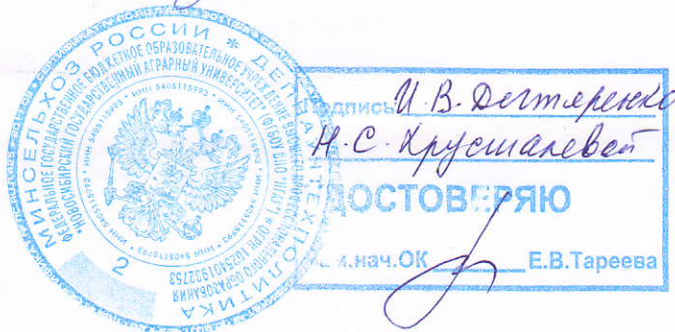 МИНСЕЛЬХОЗ РОССИИ * ДЕП
ТЕХПОЛИТИКА
ФЕДЕРАЛЬНОЕ ГОСУДАРСТВЕННОЕ БЮДЖЕТНОЕ ОБРАЗОВАТЕЛЬНОЕ УЧРЕЖДЕНИЕ
ОБРАЗОВАНИЯ
"НОВОСИБИРСКИЙ ГОСУДАРСТВЕННЫЙ АГРАРНЫЙ УНИВЕРСИТЕТ" (ФГБОУ ВПО "НГАУ")
* ОГРН 1025401932753
ИНН 5405115993 * ИНН 5405115993
2
Подпись И.В. Дегтяренко
Н.С. Хрусталевой
УДОСТОВЕРЯЮ
нач.ОК Е.В.Тареева